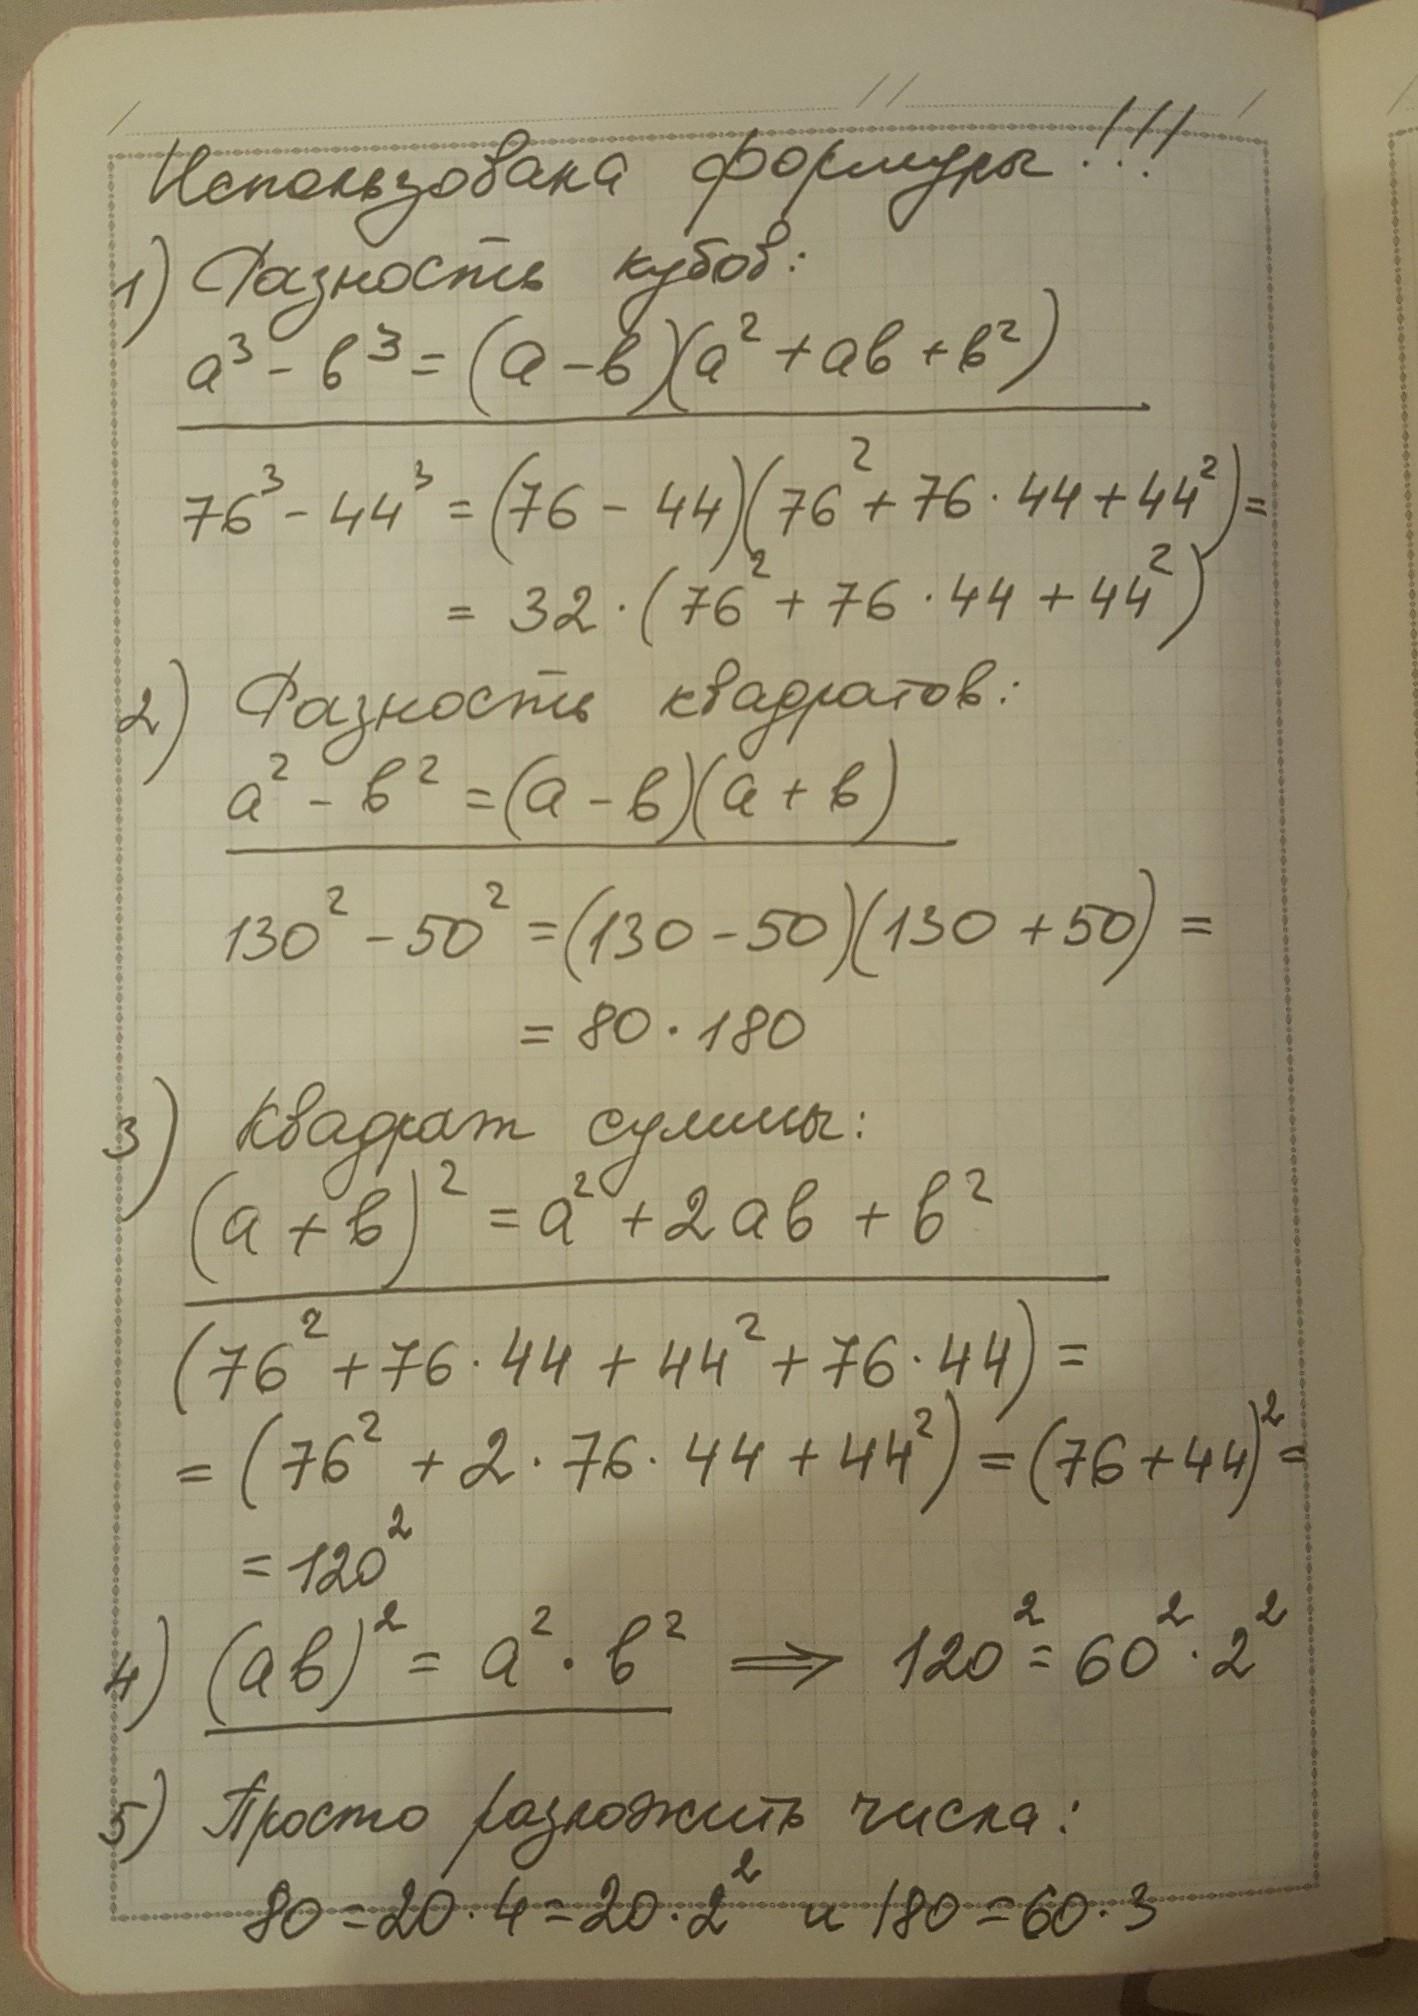 Использована формулы!!!
1) Разность кубов:
a³ - b³ = (a - b)(a² + ab + b²)
76³ - 44³ = (76 - 44)(76² + 76 · 44 + 44²) =
= 32 · (76² + 76 · 44 + 44²)
2) Разность квадратов:
a² - b² = (a - b)(a + b)
130² - 50² = (130 - 50)(130 + 50) =
= 80 · 180
3) Квадрат суммы:
(a + b)² = a² + 2ab + b²
(76² + 76 · 44 + 44² + 76 · 44) =
= (76² + 2 · 76 · 44 + 44²) = (76 + 44)² =
= 120²
4) (ab)² = a² · b² ⟹ 120² = 60² · 2²
5) Просто разложить числа:
80 = 20 · 4 = 20 · 2² и 180 = 60 · 3